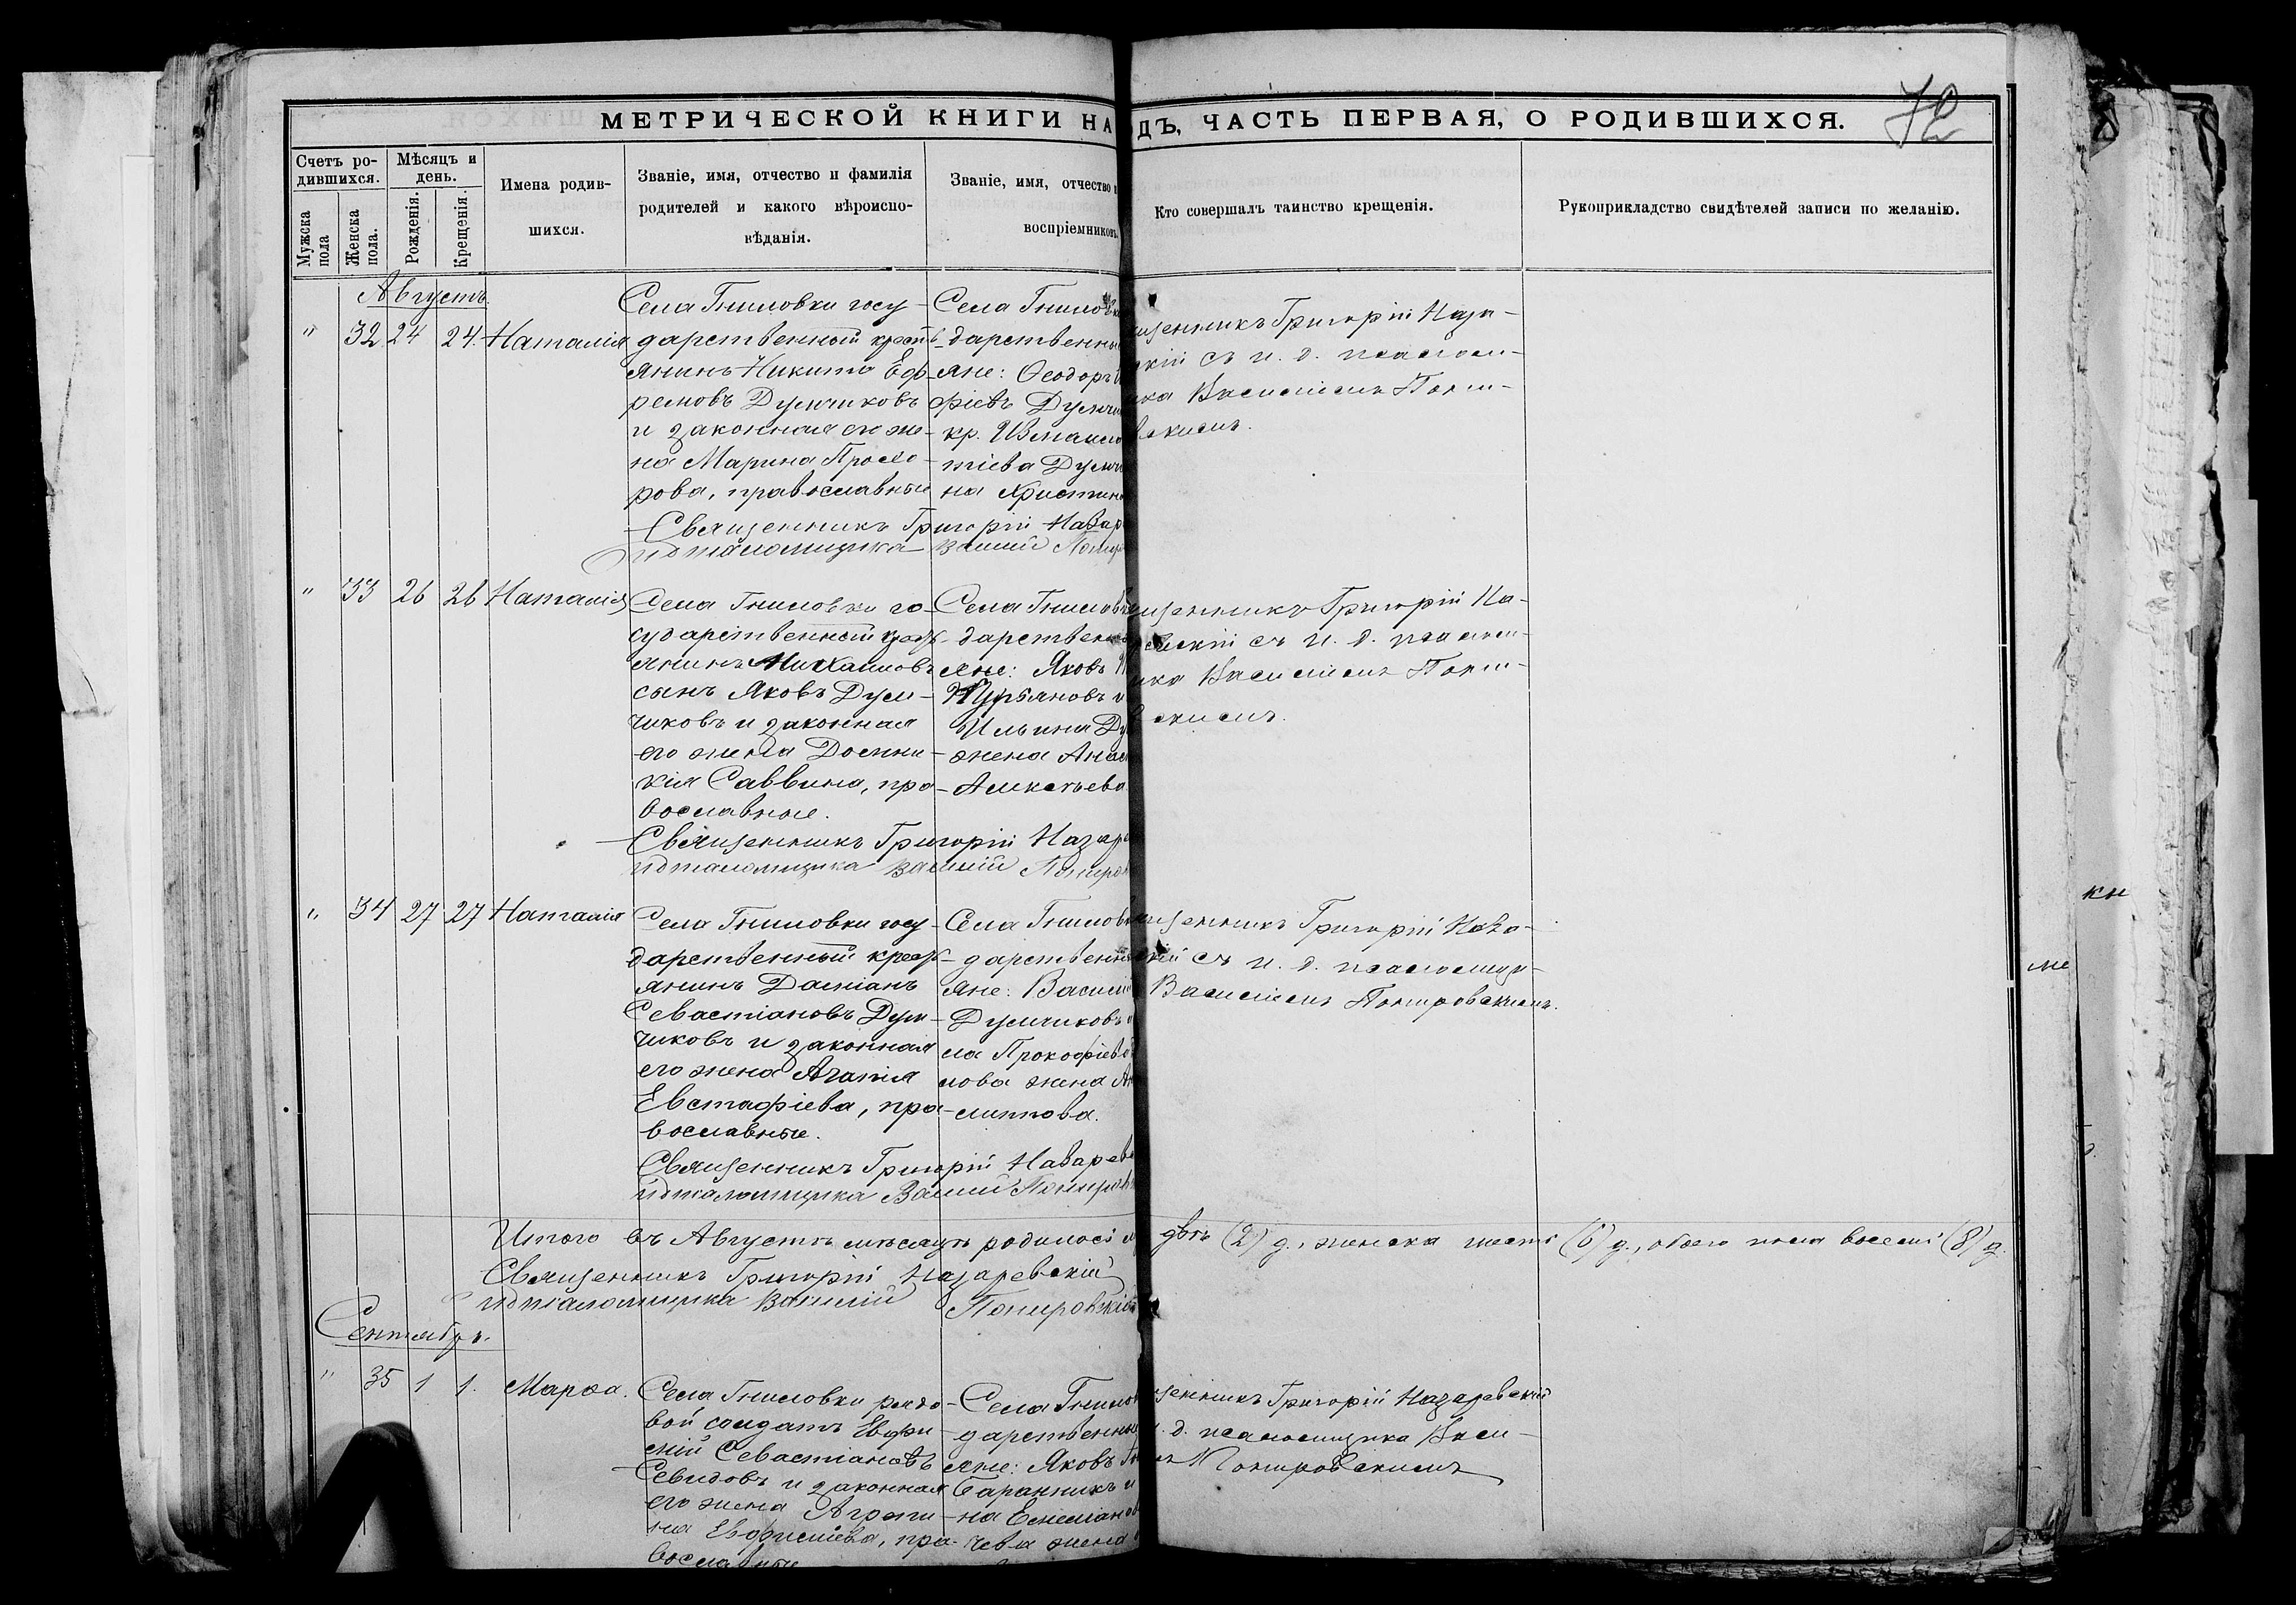 МЕТРИЧЕСКОЙ КНИГИ НА ДЪ, ЧАСТЬ ПЕРВАЯ, О РОДИВШИХСЯ.
72
Счетъ ро-
дившихся.
Мужска
пола
Женска
пола.
Мѣсяцъ и
день.
Рожденія.
Крещенія.
Имена родив-
шихся.
Званіе, имя, отчество и фамилія
родителей и какого вѣроиспо-
вѣданія.
Званіе, имя, отчество и
воспріемниковъ.
Кто совершалъ таинство крещенія.
Рукоприкладство свидѣтелей записи по желанію.
Августъ.
" 32 24 24. Наталія
Села Гниловки госу-
дарственный крест-
янинъ Никита Еф-
ремовъ Думчиковъ
и законная его же-
на Марина Прохо-
рова, православные
Села Гниловки
дарственны
яне: Ѳеодоръ
фіевъ Думчи
кр. Измаило
тіева Думч
на Христин
щенникъ Григорій Наза-
скій съ и. д. псаломщ-
ика Василіемъ Поти-
вскимъ.
Священникъ Григорій Назар
ид псаломщика Василий Потир
" 33 26 26 Наталія
Села Гниловки го-
сударственный крест-
янинъ Михаиловъ
сынъ Яковъ Дум-
чиковъ и законная
его жена Домни-
кія Саввина, пра-
вославные.
Села Гнилов
дарственн
яне: Яковъ
Курьяновъ и
Ильина Ду
жена Анас
Алексѣева
щенникъ Григорій На-
ревскій съ и. д. псалом-
ика Василіемъ Поти-
скимъ.
Священникъ Григорій Назаре
ид псаломщика Василий Потиров
" 34 27 27 Наталія
Села Гниловки госу-
дарственный крест-
янинъ Даміанъ
Севастіановъ Дум-
чиковъ и законная
его жена Агапія
Евстафіева, пра-
вославные.
Села Гнилов
дарственн
яне: Василі
Думчиковъ и
ла Прокофіева
лова жена
липпова.
щенникъ Григорій Наза-
скій съ и. д. псаломщи-
Василіемъ Потировскимъ.
Священникъ Григорій Назарев
ид псаломщика Василий Потиров
Итого въ Августѣ мѣсяцѣ родилось м двѣ (2) д., женска шесть (6) д., обоего пола восемь (8) д.
Священникъ Григорій Назаревскій
ид псаломщика Василий Потировскій
Сентябрь.
" 35 1 1. Марѳа.
Села Гниловки рядо-
вой солдатъ Евфи-
мій Севастіановъ
Севидовъ и законная
его жена Агрипи-
на Евфиміева, пра-
вославные
Села Гнилов
дарственны
яне: Яковъ
Баранникъ и
на Емеліанов
чева жена
щенникъ Григорій Назаревскій
и. д. псаломщика Васи-
Потировскимъ
кн
ме